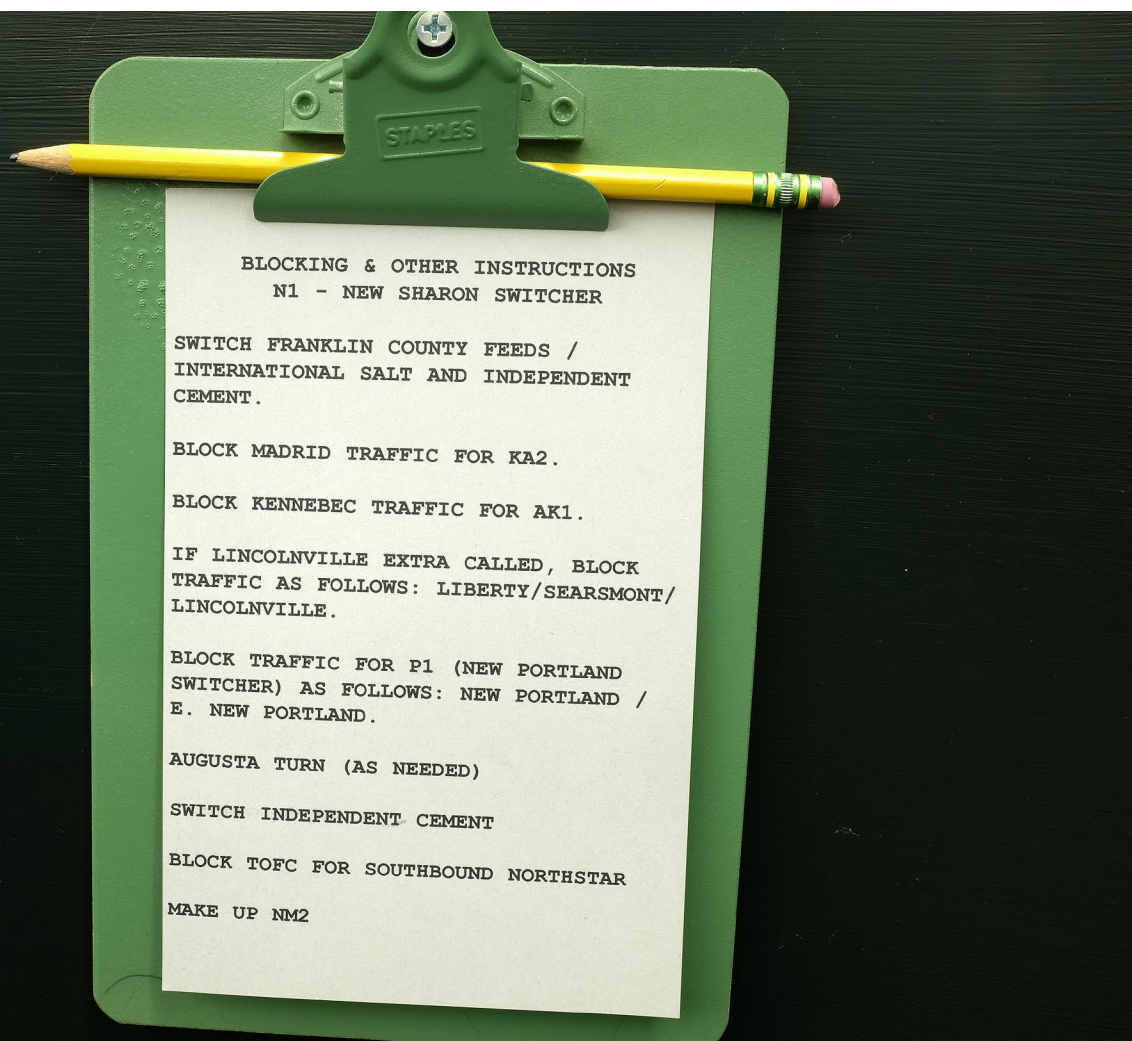 STAPLES
BLOCKING & OTHER INSTRUCTIONS
N1 - NEW SHARON SWITCHER
SWITCH FRANKLIN COUNTY FEEDS /
INTERNATIONAL SALT AND INDEPENDENT
CEMENT.
BLOCK MADRID TRAFFIC FOR KA2.
BLOCK KENNEBEC TRAFFIC FOR AK1.
IF LINCOLNVILLE EXTRA CALLED, BLOCK
TRAFFIC AS FOLLOWS: LIBERTY/SEARSMONT/
LINCOLNVILLE.
BLOCK TRAFFIC FOR P1 (NEW PORTLAND
SWITCHER) AS FOLLOWS: NEW PORTLAND /
E. NEW PORTLAND.
AUGUSTA TURN (AS NEEDED)
SWITCH INDEPENDENT CEMENT
BLOCK TOFC FOR SOUTHBOUND NORTHSTAR
MAKE UP NM2